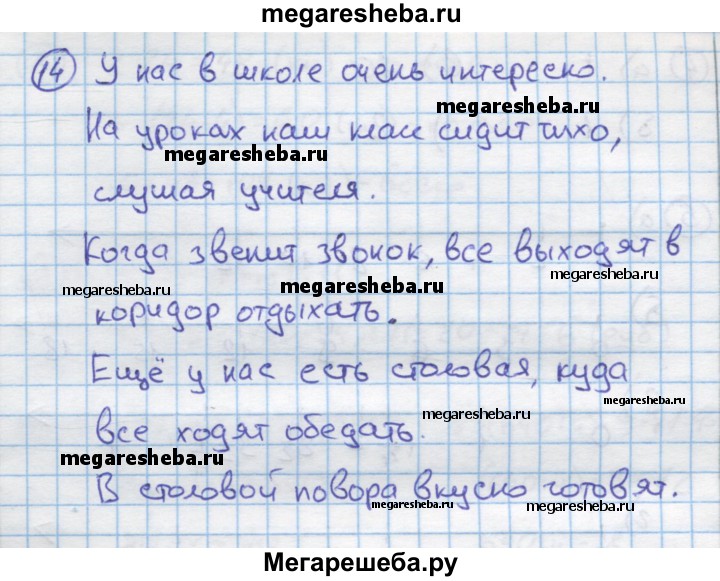 megaresheba.ru
14 У нас в школе очень интересно.
megaresheba.ru
На уроках наш класс сидит тихо,
megaresheba.ru
слушая учителя.
Когда звенит звонок, все выходят в
megaresheba.ru megaresheba.ru megaresheba.ru
коридор отдыхать.
Ещё у нас есть столовая, куда
megaresheba.ru
megaresheba.ru
все ходят обедать.
megaresheba.ru
В столовой повора вкусно готовят.
megaresheba.ru
Мегарешеба.ру